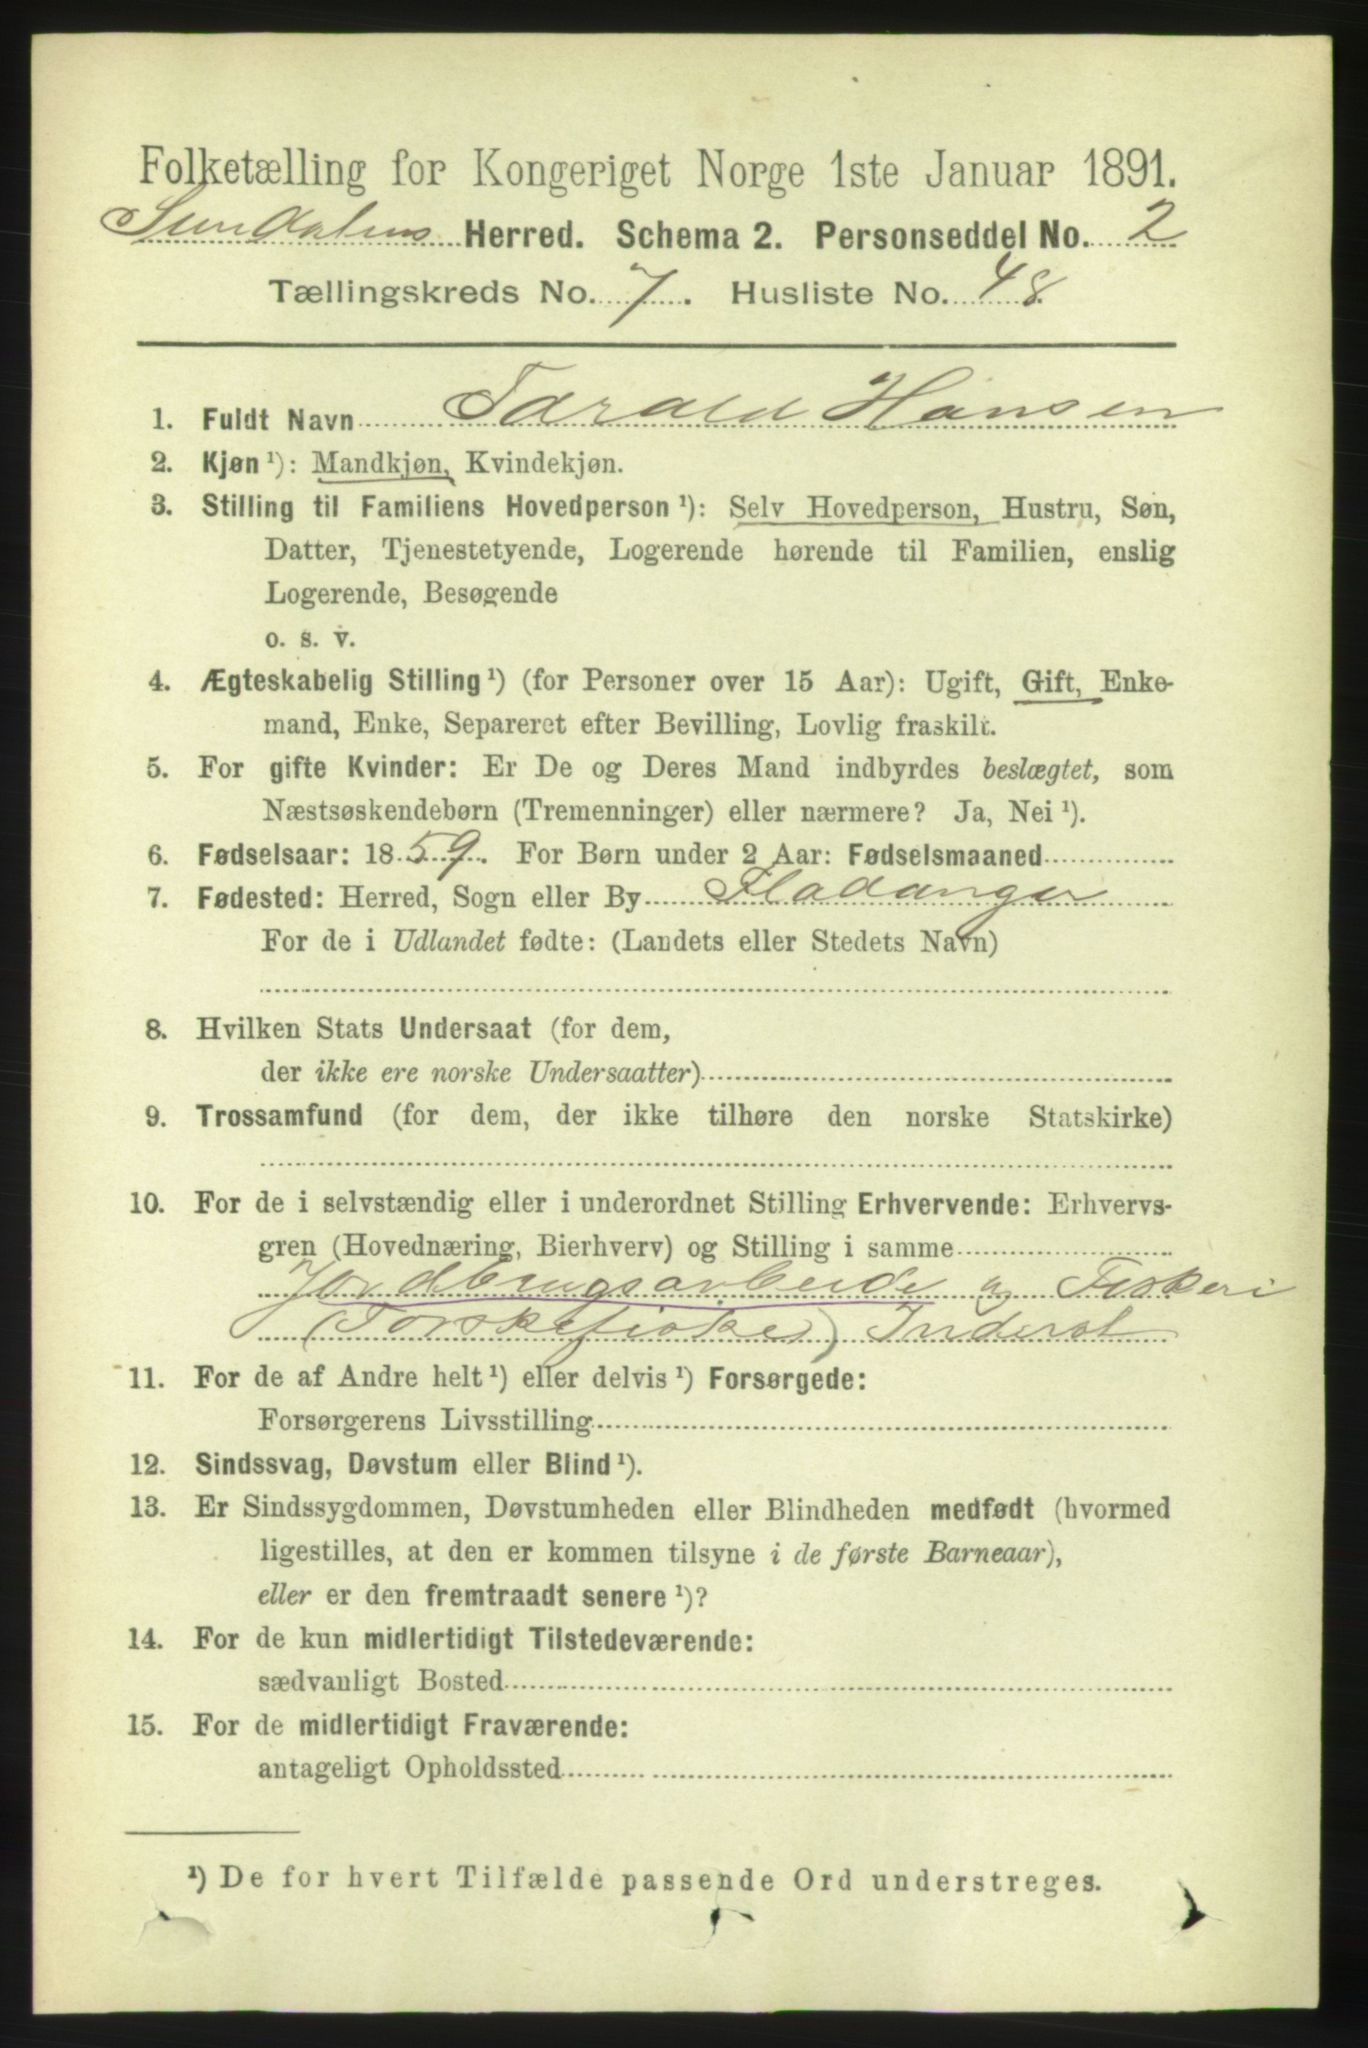 Folketælling for Kongeriget Norge 1ste Januar 1891.
Sundalens Herred. Schema 2. Personseddel No. 2
Tællingskreds No. 7. Husliste No. 48
1. Fuldt Navn Tarald Hansen
2. Kjøn ¹): Mandkjøn, Kvindekjøn.
3. Stilling til Familiens Hovedperson ¹): Selv Hovedperson, Hustru, Søn,
Datter, Tjenestetyende, Logerende hørende til Familien, enslig
Logerende, Besøgende
o. s. v.
4. Ægteskabelig Stilling ¹) (for Personer over 15 Aar): Ugift, Gift, Enke-
mand, Enke, Separeret efter Bevilling, Lovlig fraskilt.
5. For gifte Kvinder: Er De og Deres Mand indbyrdes beslægtet, som
Næstsøskendebørn (Tremenninger) eller nærmere? Ja, Nei ¹).
6. Fødselsaar: 1859. For Børn under 2 Aar: Fødselsmaaned
7. Fødested: Herred, Sogn eller By Fladanger
For de i Udlandet fødte: (Landets eller Stedets Navn)
8. Hvilken Stats Undersaat (for dem,
der ikke ere norske Undersaatter)
9. Trossamfund (for dem, der ikke tilhøre den norske Statskirke)
10. For de i selvstændig eller i underordnet Stilling Erhvervende: Erhvervs-
gren (Hovednæring, Bierhverv) og Stilling i samme
Jordbrugsarbeide og Fiskeri
(Torskefiske) Inderst
11. For de af Andre helt ¹) eller delvis ¹) Forsørgede:
Forsørgerens Livsstilling
12. Sindssvag, Døvstum eller Blind ¹).
13. Er Sindssygdommen, Døvstumheden eller Blindheden medfødt (hvormed
ligestilles, at den er kommen tilsyne i de første Barneaar),
eller er den fremtraadt senere ¹)?
14. For de kun midlertidigt Tilstedeværende:
sædvanligt Bosted
15. For de midlertidigt Fraværende:
antageligt Opholdssted
¹) De for hvert Tilfælde passende Ord understreges.